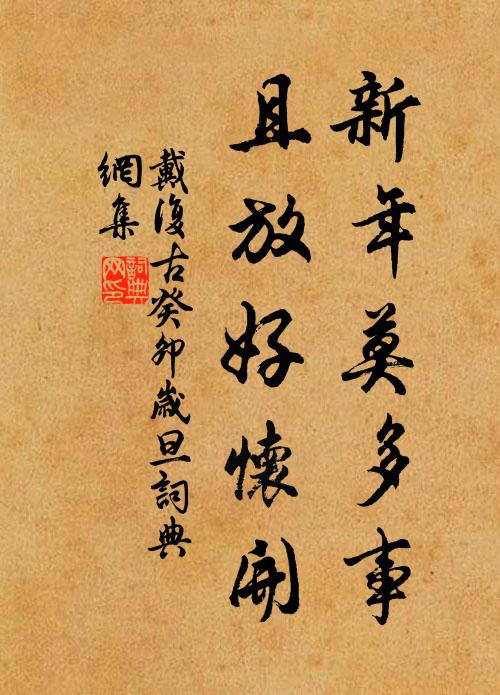 新年莫多事
且放好懷開
戴復古癸卯歲旦詞典
網集
詞典網印